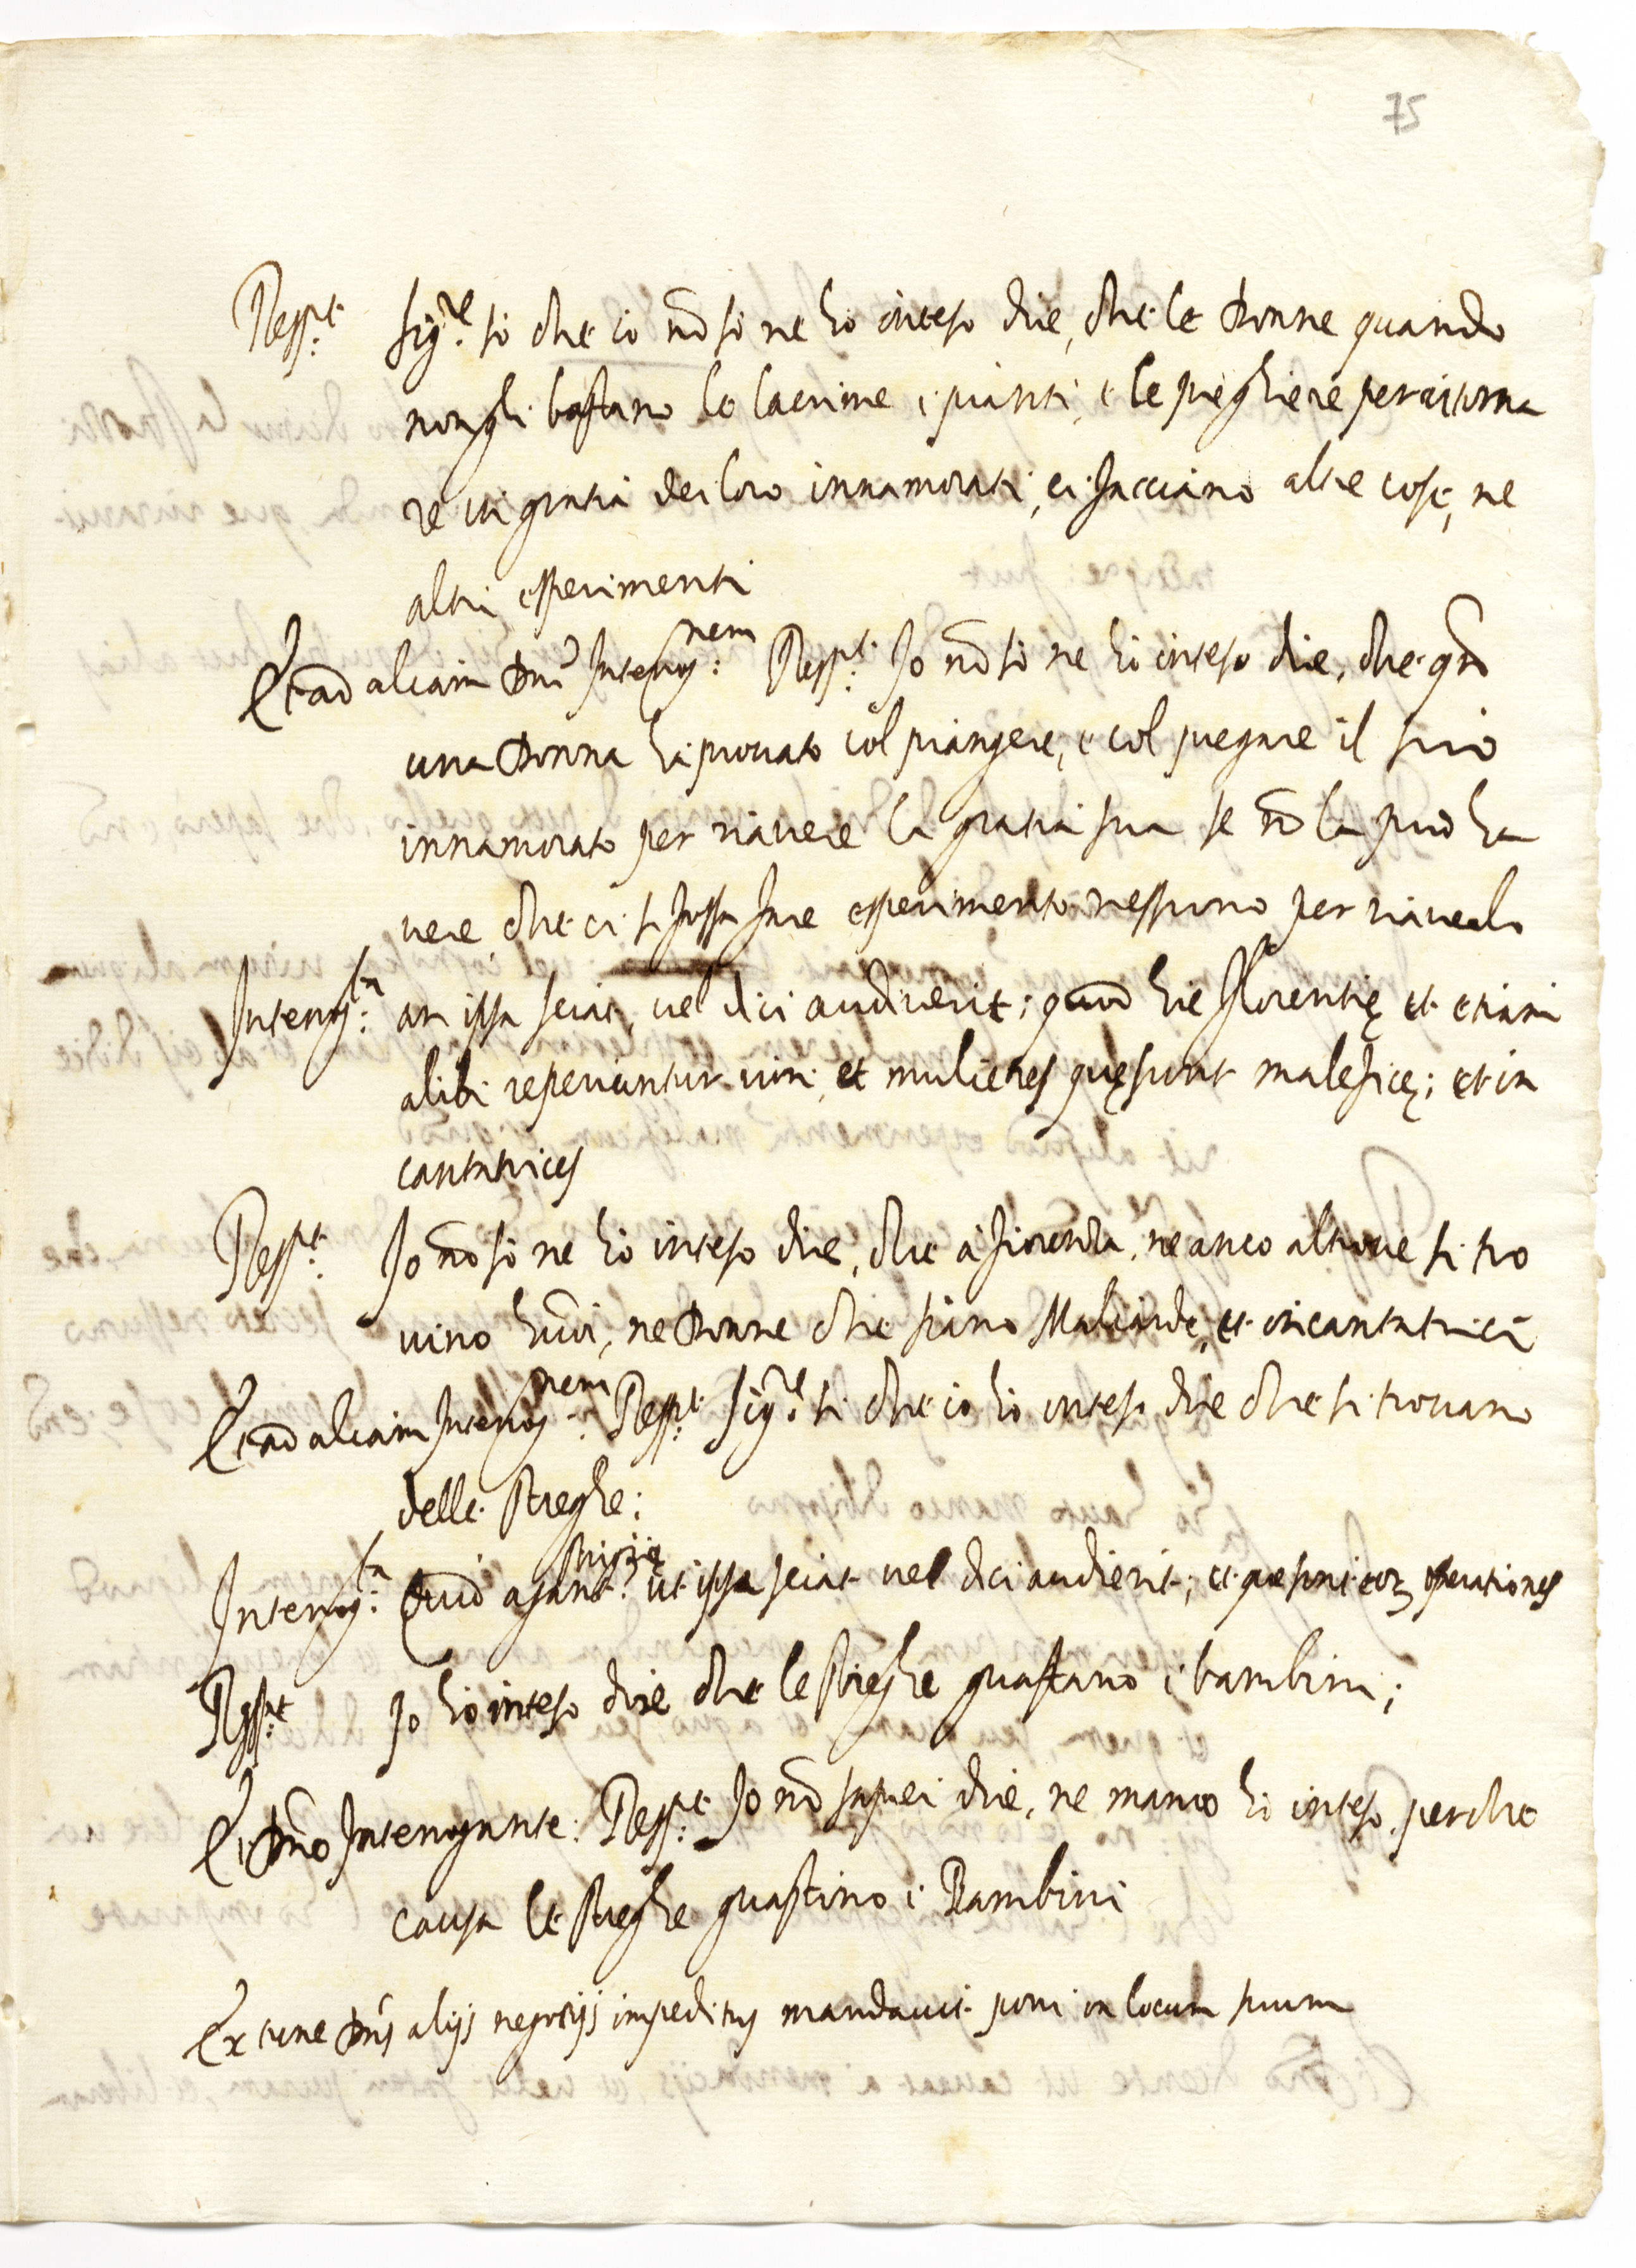 75
Resp.t Sig.re si che io nō so ne ho inteso dire, che le Donne quando
non gli bastano le lacrime i pianti, e le preghiere per ritorna
re in gratia dei loro innamorati, ci facciano altre cose, ne
altri esperimenti
Et ad aliam Dni Interog.nem: Resp.t Io nō so ne ho inteso dire, che qn̄do
una Donna ha prouato col piangere, e col pregare il suo
innamorato per riauere la gratia sua se nō la può ha
uere che ci si possa fare esperimento nessuno per riauerlo
Interog.ta an ipsa sciat, uel dici audiuerit; quod hic Florentię et etiam
alibi reperiantur uiri, et mulieres quę sunt maleficę; et in
cantatrices
Resp.t Io nō so ne ho inteso dire, che à fiorenza, ne anco altroue si tro
uino huoī, ne Donne che siano Maliarde, et incantatrici
Et ad aliam Interog.nem Resp.t Sig.re si che io ho inteso dire che si trouano
delle streghe:
Interog.ta Quid agant strigię ut ipsa sciat uel dici audierit; et quę sint eoꝝ operationes
Resp.t Io ho inteso dire che le streghe guastano i bambini;
Et Dn̄o Interogante: Resp.t Io nō saprei dire, ne manco ho inteso, perche
causa le streghe guastino i Bambini
Ex tunc Dn̄s alijs negotijs impeditus mandauit poni in locum suum